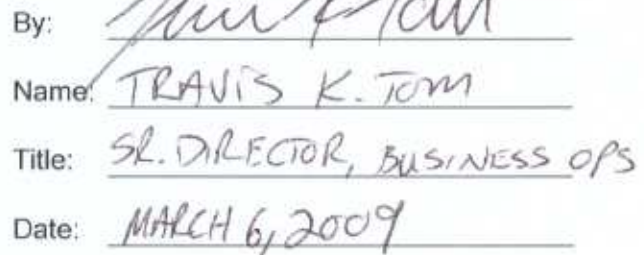 By:
Name: TRAVIS K. TOM
Title: SR. DIRECTOR, BUSINESS OPS
Date: MARCH 6, 2009